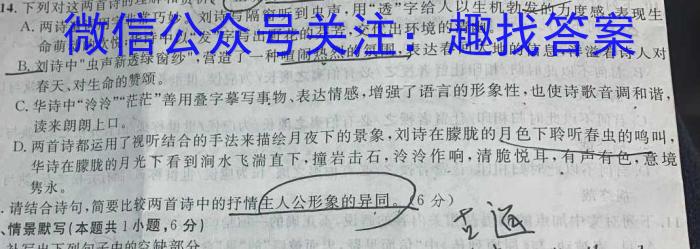 14. 下列对这两首诗的理解和赏析，
A. 两诗
声，用“透”字给人以生机勃发的力度感，表现生
微信公众号关注：趣找答案
B. 刘诗中“虫声新透绿窗纱”，营造了一种喧闹热烈的氛围，表达着
人对
春天、对生命的赞颂。
C. 华诗中“泠泠”“茫茫”善用叠字摹写事物、表达情感，增强了语言的形象性，也使诗歌音调和谐，
读来朗朗上口。
D. 两首诗都运用了视听结合的手法来描绘月夜下的景象，刘诗在朦胧的月色下聆听春虫的鸣叫，
华诗在朦胧的月光下看到涧水飞湍直下，撞岩击石，泠泠作响，清脆悦耳，有声有色，意境
隽永。
. 请结合诗句，简要比较两首诗中的抒情主人公形象的异同。（6 分）
情景默写（本题共 1 小题，6 分）
补写出下列句子中的空缺部分